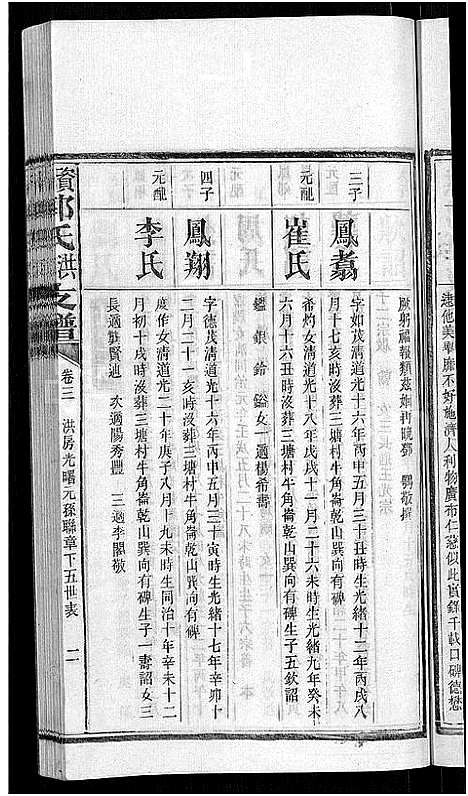 遠他美舉廉不好施濟人利物廣布仁慈似此實錄千載口碑德懋
厥躬福
三子
鳳翥
字如茂清道光十六年丙申五月三十丑時生光緒十二年丙戌八
月十七亥時沒葬三塘村牛角崙乾山巽向有碑
元配
崔氏
希灼女清道光十八年戊戌十一月二十六未時生光緒九年癸未
六月十六丑時沒葬三塘村牛角崙乾山巽向有碑生子五欽詔
鑑 銀 鈴 鎰女一適楊希書
四子
鳳翔
字德茂清道光十六年丙申五月三十寅時生光緒十七年辛卯十
二月二十一亥時沒葬三塘村牛角崙乾山巽向有碑
元配
李氏
庭作女清道光二十年庚子八月十九未時生同治十年辛未十二
月初十戌時沒葬三塘村牛角崙乾山巽向有碑生子一壽詔女三
長適龔賢迪 次適陽秀豐 三適李閣敬
資鄧氏洪之譜
卷三 洪房光曙元孫聯章下五世表 二